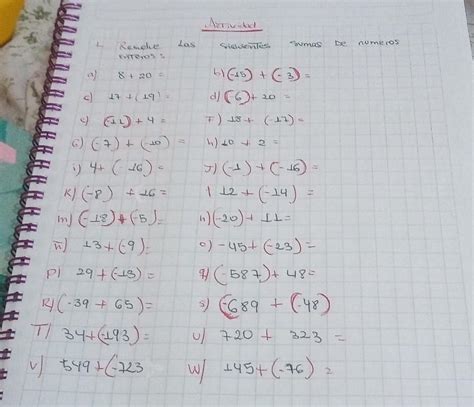 Actividad
1. Resuelve las siguientes sumas de numeros
enteros:
a) 8 + 20 = b) (-15) + (-3) =
c) 17 + (19) = d) (-6) + 20 =
e) (11) + 4 = F) 18 + (-17) =
G) (-7) + (-10) = h) 10 + 2 =
i) 4 + (-16) = J) (-1) + (-16) =
K) (-8) + 16 = l 12 + (-14) =
m) (-18) + (-5) = n) (-20) + 11 =
ñ) 13 + (-9) = o) -45 + (-23) =
P) 29 + (-13) = q) (-587) + 48 =
R) (-39 + 65) = s) (-689 + (-48)
T) 34 + (-193) = U) 720 + 323 =
V) 549 + (-723 W) 145 + (-76) =